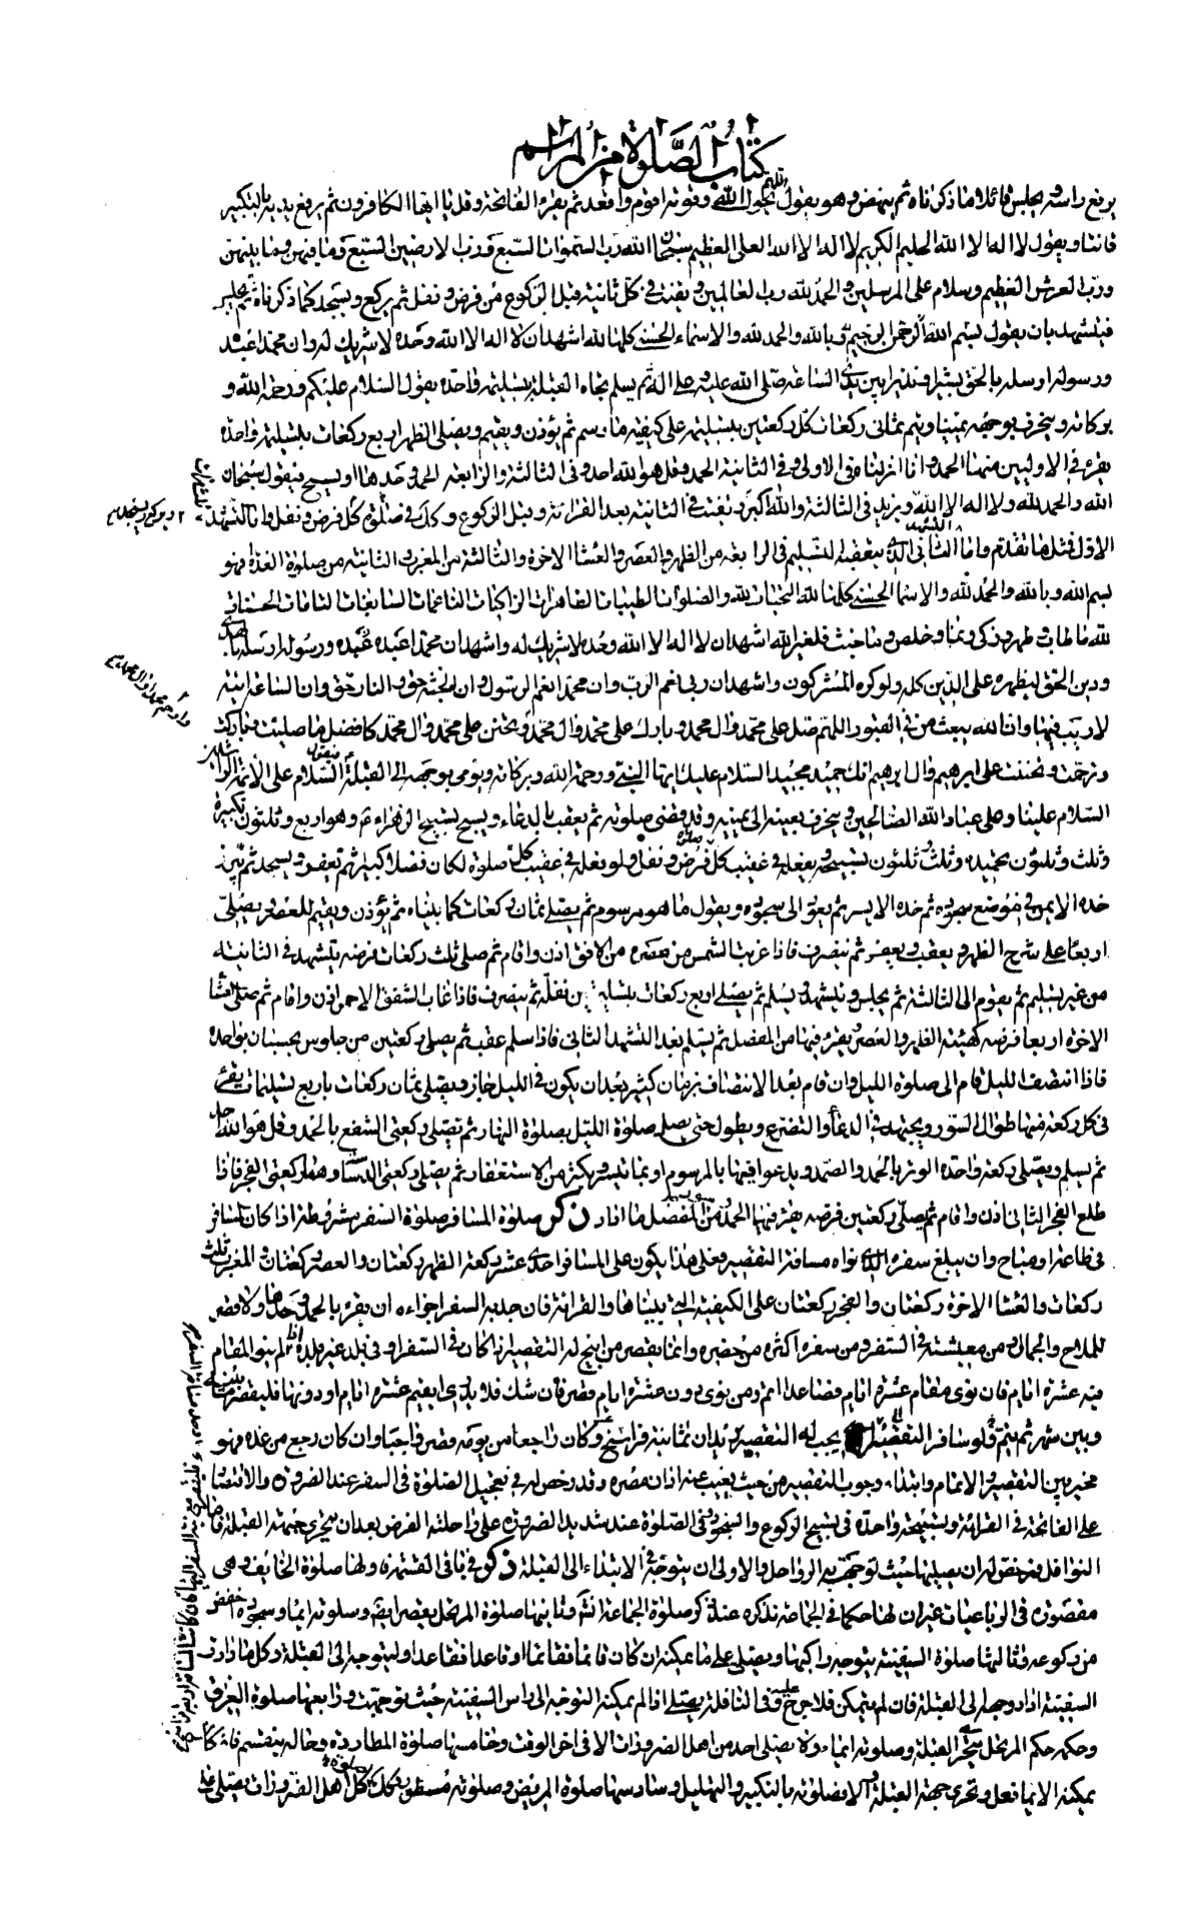 كتاب الصلوة من المراسم
يرفع راسه و يجلس قائلا ما ذكرناه ثم ينهض و هو يقول بحول الله و قوته اقوم و اقعد ثم يقرء الفاتحة و قل يا ايها الكافرون ثم يرفع يديه بالتكبير
قانتا و يقول لا اله الا الله الحليم الكريم لا اله الا الله العلى العظيم سبحان الله رب السموات السبع و رب الارضين السبع و ما فيهن و ما بينهن
و رب العرش العظيم و سلام على المرسلين و الحمد لله رب العالمين و يقنت في كل ثانية قبل الركوع من فرض و نفل ثم يركع و يسجد كما ذكرناه ثم يجلس
فيتشهد بان يقول بسم الله الرحمن الرحيم و بالله و الحمد لله و الاسماء الحسنى كلها لله اشهد ان لا اله الا الله وحده لا شريك له و ان محمدا عبده
و رسوله ارسله بالحق بشيرا و نذيرا بين يدى الساعة صلى الله عليه و على اله ثم يسلم تجاه القبلة تسليمة واحدة يقول السلام عليكم و رحمة الله و
بركاته و ينحرف بوجهه يمينا و يتم ثمانى ركعات كل ركعتين بتسليمة على كيفية ما رسم ثم يؤذن و يقيم و يصلى الظهر اربع ركعات بتسليمة واحدة
يقرء في الاوليين منهما الحمد و انا انزلناه فى الاولى و في الثانية الحمد و قل هو الله احد و فى الثالثة و الرابعة الحمد وحدها او يسبح فيقول سبحان
الله و الحمد لله و لا اله الا الله و يزيد فى الثالثة و الله اكبر و يقنت فى الثانية بعد القراءة و قبل الركوع و كذلك في صلوة كل فرض و نفل و اما التشهد
الاول فمثل ما تقدم و اما الثانى الذى يتعقبه التسليم فى الرابعة من الظهر و العصر و العشا الاخرة و الثالثة من المغرب و الثانية من صلوة الغداة فهو
بسم الله و بالله و الحمد لله و الاسماء الحسنى كلها لله التحيات لله و الصلوات الطيبات الطاهرات الزاكيات الناعمات السابغات التامات الحسنات
لله ما طاب و طهر و زكى و نما و خلص و ما خبث فلغير الله اشهد ان لا اله الا الله وحده لا شريك له و اشهد ان محمدا عبده و رسوله ارسله بالهدى
و دين الحق ليظهره على الدين كله و لو كره المشركون و اشهد ان ربى نعم الرب و ان محمدا نعم الرسول و ان الجنة حق و النار حق و ان الساعة اتية
لا ريب فيها و ان الله يبعث من في القبور اللهم صل على محمد و ال محمد و بارك على محمد و ال محمد و تحنن على محمد و ال محمد كافضل ما صليت و باركت
و ترحمت و تحننت على ابرهيم و ال ابرهيم انك حميد مجيد السلام عليك ايها النبى و رحمة الله و بركاته و يومى بوجهه الى القبلة فيقول السلام على الائمة الراشدين
السلام علينا و على عباد الله الصالحين و ينحرف بعينه الى يمينه و قد قضى صلوته ثم يعقب بالدعاء و يسبح تسبيح الزهراء ع و هو اربع و ثلثون تكبيرة
و ثلث و ثلثون تحميدة و ثلث و ثلثون تسبيحة و يفعله في عقيب كل صلوة فرض و نفل و لو فعله في عقيب كل صلوة لكان فضلا كبيرا ثم يعفر و يسجد ثم يترك
خده الايمن في موضع سجوده ثم خده الايسر ثم يعود الى سجوده و يقول ما هو مرسوم ثم يصلى ثمان ركعات كما بيناه ثم يؤذن و يقيم للعصر و يصلى
اربعا على شرح الظهر و يعقب و يعفر ثم ينصرف فاذا غربت الشمس من الافق اذن و اقام ثم صلى ثلث ركعات فرضه يتشهد فى الثانية
من غير تسليم ثم يقوم الى الثالثة ثم يجلس و يتشهد و يسلم ثم يصلى اربع ركعات بتسليمتين نفلة ثم ينصرف فاذا غاب الشفق الاحمر اذن و اقام ثم صلى العشا
الاخرة اربعا فرضه كهيئة الظهر و العصر يقرء فيها من المفصل ثم يسلم بعد التشهد الثانى فاذا سلم عقب ثم يصلى ركعتين من جلوس يحسبان بواحدة
فاذا انتصف الليل قام الى صلوة الليل و ان قام بعد الانتصاف بزمان كثير بعد ان يكون في الليل جاز و يصلى ثمان ركعات باربع تسليمات يقرء
في كل ركعة منها طوال السور و يجتهد في الدعاء و التضرع و يطول حتى يصل صلوة الليل بصلوة النهار ثم يصلى ركعتى الشفع بالحمد و قل هو الله احد
ثم يسلم و يصلى ركعة واحدة الوتر بالحمد و الصمد و يدعو فيها بالمرسوم او بما تيسر و يكثر من الاستغفار ثم يصلى ركعتى الدساسة و هما ركعتى الفجر فاذا
طلع الفجر الثانى اذن و اقام ثم يصلى ركعتين فرضه يقرء فيها الحمد و سورة من المفصل ما اراد ذكر صلوة المسافر صلوة السفر بشروطه اذا كان السفر
فى طاعة او مباح و ان يبلغ سفره الذى نواه مسافة التقصير فعلى هذا يكون على المسافر احدى عشر ركعة الظهر ركعتان و العصر ركعتان و المغرب ثلث
ركعات و العشا الاخرة ركعتان و الفجر ركعتان على الكيفية التى بيناها و القراءة فان جد به السفر اجزاءه ان يقرء بالحمد وحدها و لا قصر
للملاح و الجمال و من معيشته فى السفر و من سفره اكثر من حضره و انما يقصر من ابيح له التقصير اذا كان فى السفر او فى بلد غير بلده اذا لم ينو المقام
فيه عشرة ايام فان نوى مقام عشرة ايام فصاعدا اتم و من نوى دون عشرة ايام قصر فان شك فلا يدرى ايقيم عشرة ايام او دونها فليقصر ما بينه
و بين شهر ثم يتم و لو سافر يجب له التقصير بريدان ثمانية فراسخ و كان راجعا من يومه قصر واجبا و ان كان رجع من غده فهو
مخير بين التقصير و الاتمام و ابتداء وجوب التقصير من حيث يغيب عنه اذان مصره و قد رخص له في تعجيل الصلوة فى السفر عند الضرورة و الاقتصار
على الفاتحة فى القراءة و تسبيحة واحدة فى تسبيح الركوع و السجود و فى الصلوة عند شديد الضرورة على راحلته الفرض بعد ان يتحرى جهة القبلة فاما
النوافل فمرخص له ان يصليها حيث توجهت به الرواحل و الاولى ان يتوجه في الابتداء الى القبلة ذكر في باقى القسمة و لها صلوة الخائف و هى
مقصورة فى الرباعيات غير ان لها حكما في الجماعة نذكره عند ذكر صلوة الجماعة انشاء و ثانيها صلوة المرتحل يقصر ايضا و صلوته ايماء و سجوده اخفض
من ركوعه و ثالثها صلوة السفينة يتوجه راكبها و يصلى على ما يمكنه ان كان قائما فقائما او قاعدا فقاعدا و ليتوجه الى القبلة و كل ما دارت
السفينة ادار وجهه الى القبلة فان لم يتمكن فلا حرج عليه و فى النافلة يصلى اذا لم يمكنه التوجه الى راس السفينة حيث توجهت و رابعها صلوة العريان
و حكمه حكم المرتحل يتحرى القبلة و صلوته ايماء و لا يصلى احد من اهل الضرورات الا فى اخر الوقت و خامسها صلوة المطاردة و حاله ينقسم فان كان
يمكنه الايماء فعل و تحرى جهة القبلة و الا فصلوته بالتكبير و التهليل و سادسها صلوة المريض و صلوته و كذلك كل اهل الضرورات يصلى على